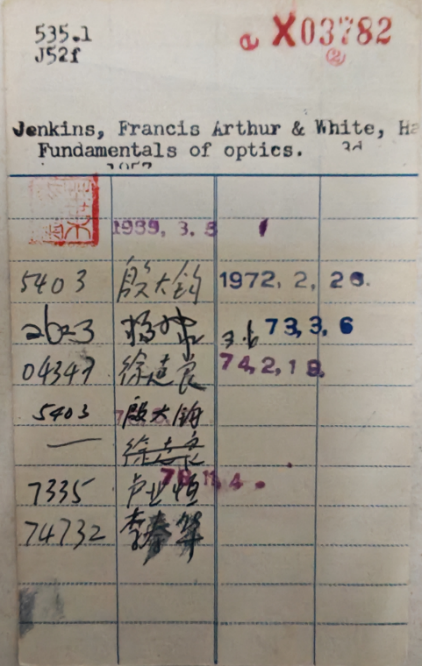 535.1
J52f
e X03782
②
Jenkins, Francis Arthur & White, Ha
Fundamentals of optics. 3d
1957
1989, 3. 8
5403 殷大钧 1972, 2, 28.
2623 杨 3.6 73, 3, 6
04347 徐志良 74, 2, 19.
5403 殷大钧
徐志良
78, 11, 4.
7335 卢业恒
74732 李